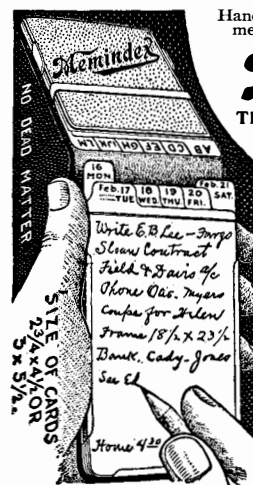 Hand
me
TH
Memindex
NO DEAD MATTER
AB CD EF GH IJK LM
16 MON
Feb. 17 TUE 18 WED. 19 THU. 20 FRI. Feb. 21 SAT.
Write E.B. Lee - Fargo
Sloan Contract
Field & Davis a/c
Phone Das. Myers
Coupe for Helen
Frame 18 1/2 x 23 1/2
Bank. Cady-Jones
See Ed
Home 4 30
SIZE OF CARDS
2 3/4 x 4 1/2 OR
3 x 5 1/2 in.